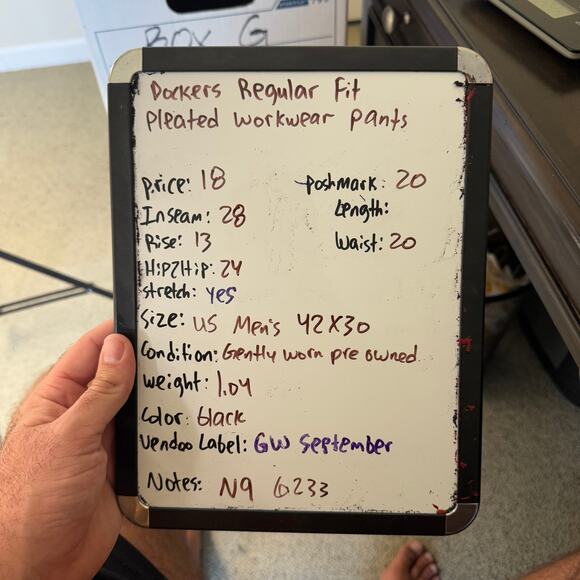 BOX G
Dockers Regular Fit
Pleated workwear pants
price: 18 poshmark: 20
Inseam: 28 Length:
Rise: 13 Waist: 20
Hip2Hip: 24
stretch: yes
Size: US Men's 42X30
Condition: Gently worn pre owned
weight: 1.04
Color: black
Vendoo Label: GW September
Notes: N9 6233